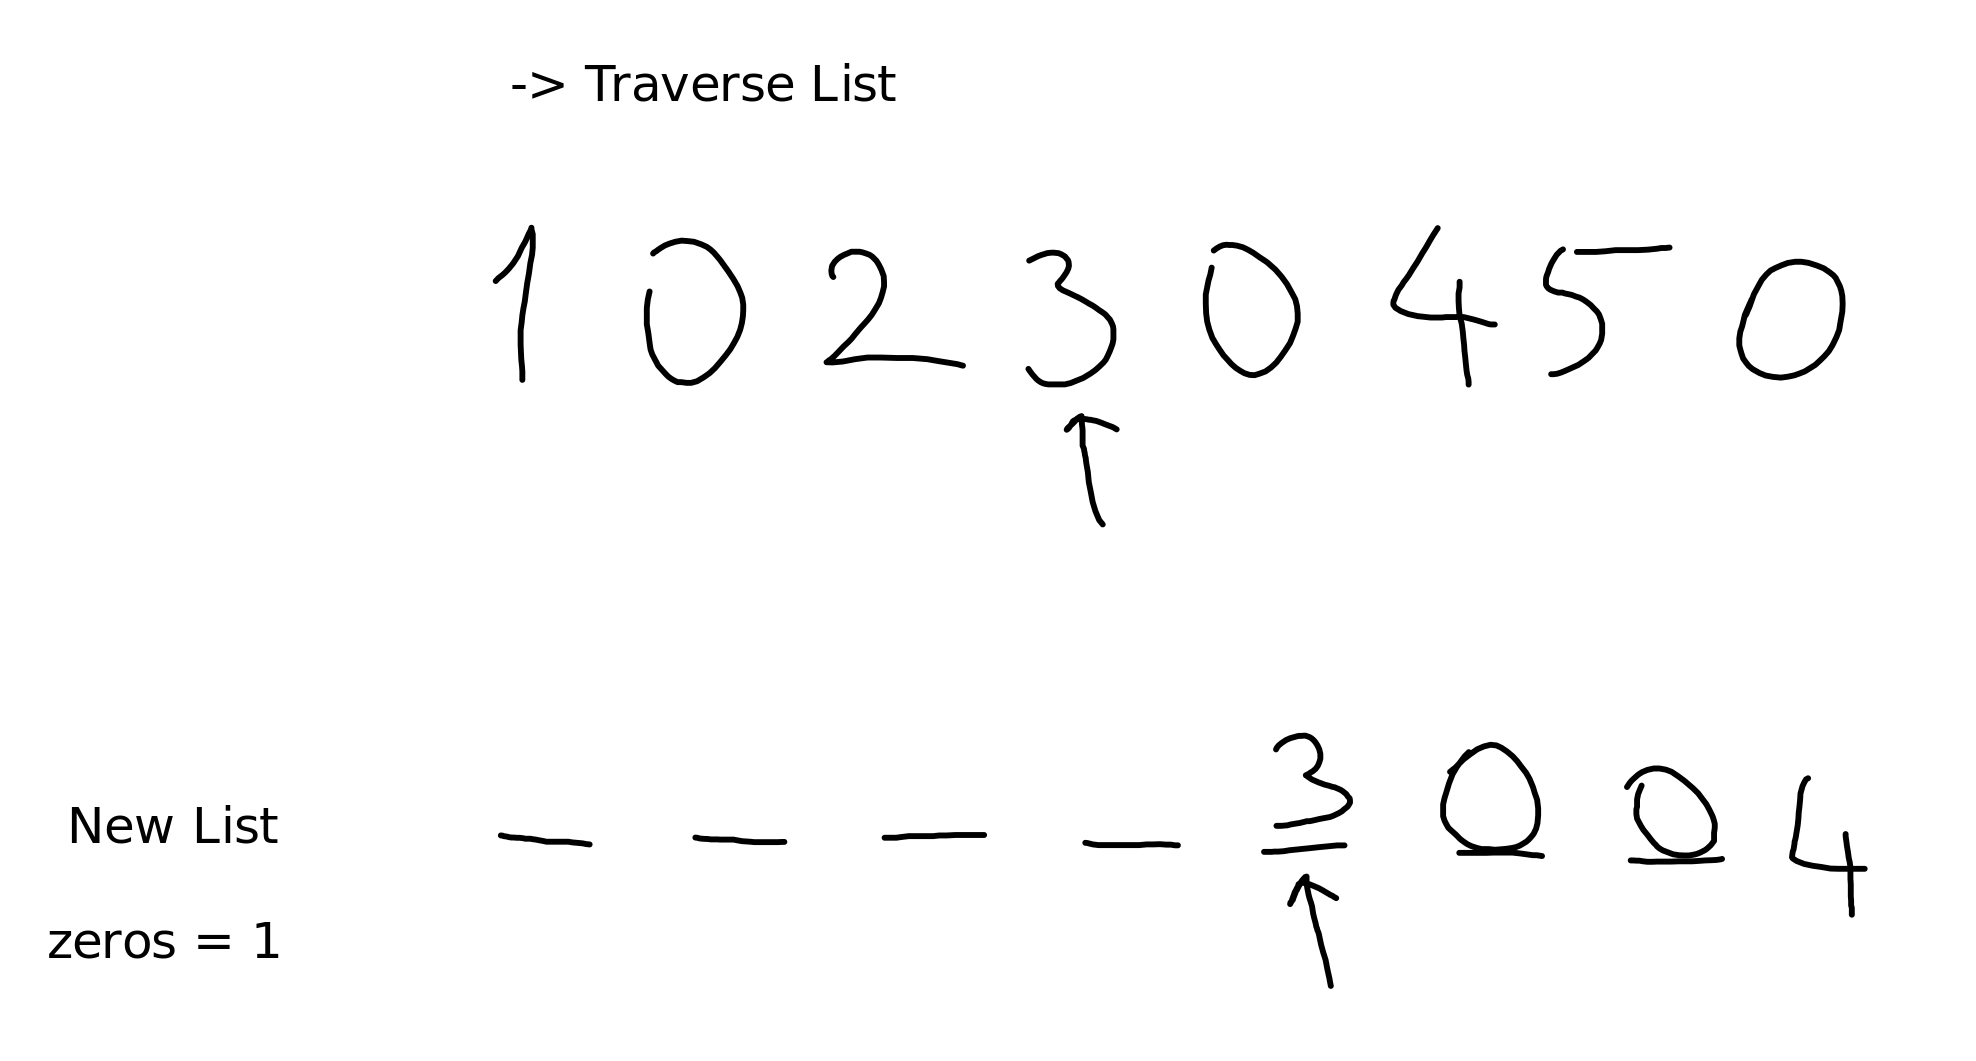 -> Traverse List
1 0 2 3 0 4 5 0
New List _ _ _ _ 3 0 0 4
zeros = 1